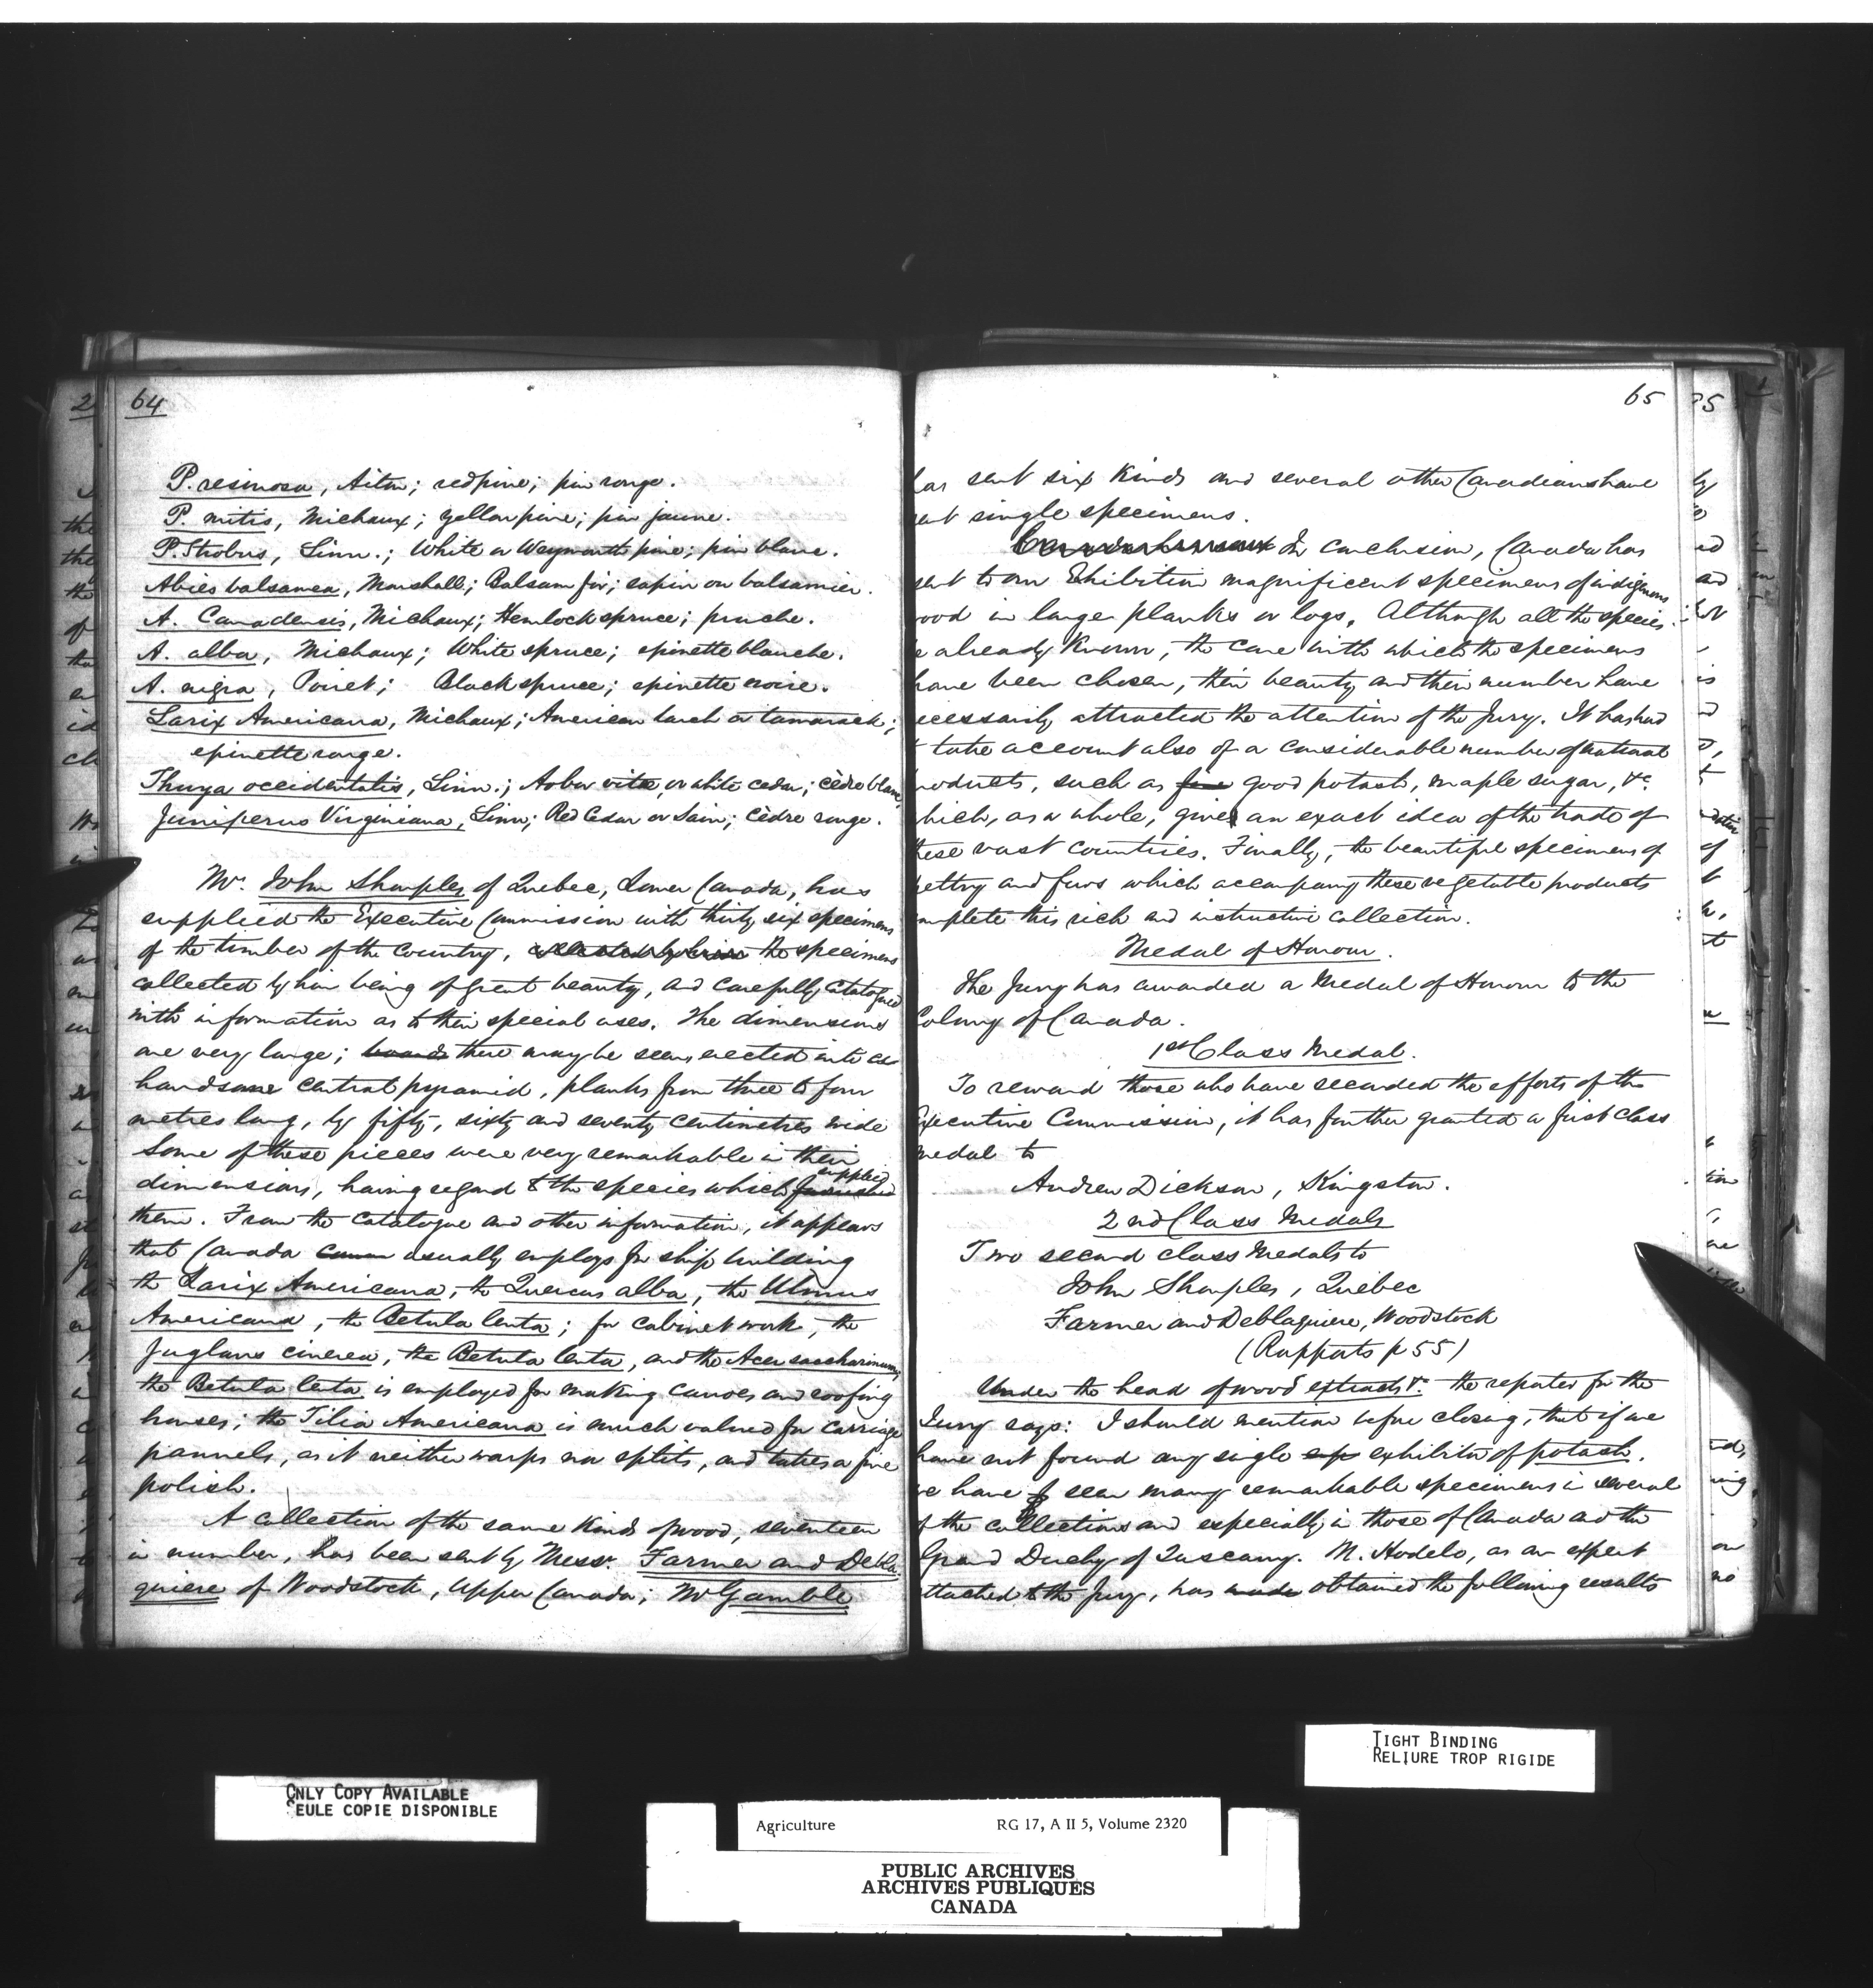 64
P. resinosa, Aiton; red pine; pin rouge.
P. mitis, Michaux; yellow pine; pin jaune.
P. Strobus, Linn.; White or Weymouth pine; pin blanc.
Abies balsamea, Marshall; Balsam fir; sapin ou balsamier.
A. Canadensis, Michaux; Hemlock spruce; pruche.
A. alba, Michaux; White spruce; epinette blanche.
A. nigra, Poiret; Black spruce; epinette noire.
Larix Americana, Michaux; American larch or tamarack;
epinette rouge.
Thuya occidentalis, Linn.; Arbor vitæ, or white cedar; cèdre blanc,
Juniperus Virginiana, Linn; Red Cedar or Savin; Cèdre rouge.
Mr. John Sharples of Quebec, Lower Canada, has
supplied the Executive Commission with thirty six specimens
of the timber of the country, collected by him the specimens
collected by him being of great beauty, and carefully catalogued
with information as to their special uses. The dimensions
are very large; boards there may be seen, erected into a
handsome central pyramid, planks from three to four
metres long, by fifty, sixty and seventy centimetres wide
Some of these pieces were very remarkable in their
dimensions, having regard to the species which furnished supplied
them. From the catalogue and other information, it appears
that Canada usually employs for ship building
the Larix Americana, the Quercus alba, the Ulmus
Americana, the Betula lenta; for cabinet work, the
Juglans cinerea, the Betula lenta, and the Acer saccharinum,
the Betula lenta is employed for making canoes and roofing
houses; the Tilia Americana is much valued for carriage
pannels, as it neither warps nor splits, and takes a fine
polish.
A collection of the same kinds of wood, seventeen
in number, has been sent by Messr. Farmer and Debla-
quiere of Woodstock, Upper Canada; Mr Gamble
65
has sent six kinds and several other Canadians have
sent single specimens.
In conclusion, Canada has
sent to our Exhibition magnificent specimens of indigenous
wood in large planks or logs. Although all the species
be already known, the care with which the specimens
have been chosen, their beauty and their number have
necessarily attracted the attention of the Jury. It has had
to take account also of a considerable number of natural
products, such as fine good potash, maple sugar, &c.
which, as a whole, gives an exact idea of the trade of
these vast countries. Finally, the beautiful specimens of
peltry and furs which accompany these vegetable products
complete this rich and instructive collection.
Medal of Honour.
The Jury has awarded a Medal of Honour to the
Colony of Canada.
1st Class Medal.
To reward those who have seconded the efforts of the
Executive Commission, it has further granted a first class
medal to
Andrew Dickson, Kingston.
2nd Class Medals
Two second class Medals to
John Sharples, Quebec
Farmer and Deblaquiere, Woodstock
(Rapports p 55)
Under the head of wood extracts &c. the reporter for the
Jury says: I should mention before closing, that if we
have not found any single exp exhibitor of potash,
we have seen many remarkable specimens in several
of the collections and especially in those of Canada and the
Grand Duchy of Tuscany. M. Hodelo, as an expert
attached to the Jury, has made obtained the following results
ONLY COPY AVAILABLE
SEULE COPIE DISPONIBLE
TIGHT BINDING
RELIURE TROP RIGIDE
Agriculture RG 17, A II 5, Volume 2320
PUBLIC ARCHIVES
ARCHIVES PUBLIQUES
CANADA